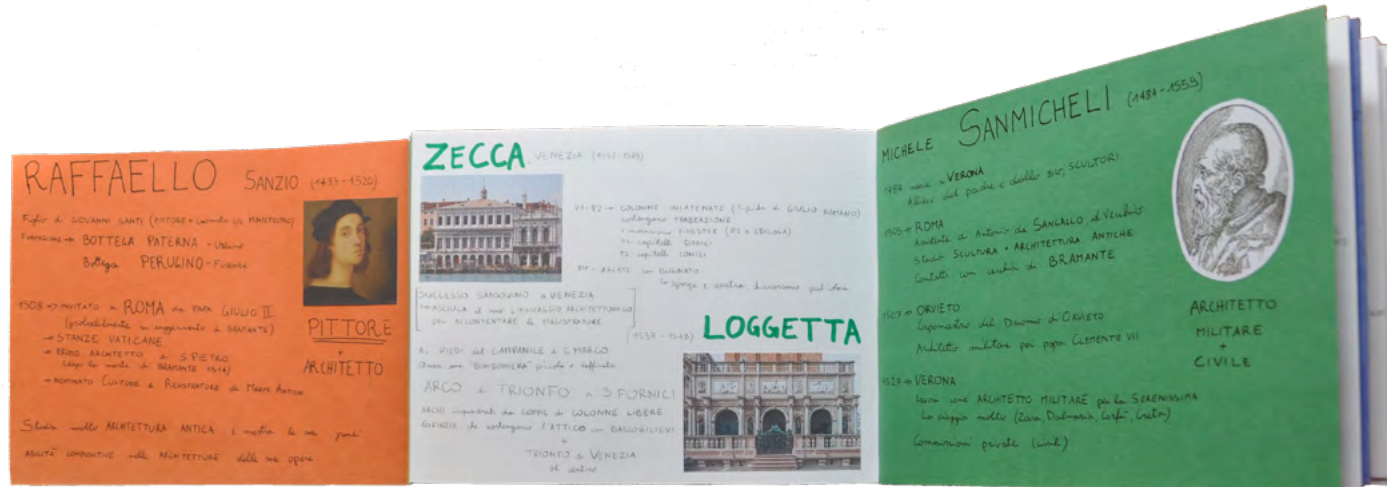 RAFFAELLO SANZIO (1483-1520)
Figlio di GIOVANNI SANTI (PITTORE
Formazione → BOTTEGA PATERNA - Urbino
Bottega PERUGINO - Firenze
1508 → INVITATO a ROMA da PAPA GIULIO II
(probabilmente su suggerimento di BRAMANTE)
→ STANZE VATICANE
→ PRIMO ARCHITETTO di S. PIETRO
(dopo la morte di BRAMANTE 1514)
→ NOMINATO CUSTODE e REGISTRATORE dei MARMI ANTICHI
Studia molto ARCHITETTURA ANTICA e mostra le sue grandi
ABILITÀ COMPOSITIVE nelle ARCHITETTURE delle sue opere
PITTORE
+
ARCHITETTO
ZECCA, VENEZIA (1537-
COLONNE INCATENATE GIULIO ROMANO)
sostengono TRABEAZIONE
FINESTRE
capitelli DORICI
capitelli IONICI
PT → ARCATE con BUGNATO
SUCCESSO SANSOVINO a VENEZIA
il suo LINGUAGGIO ARCHITETTONICO
per ACCONTENTARE la MAGISTRATURE
LOGGETTA
(1537-
Ai PIEDI del CAMPANILE di S. MARCO
una "BOMBONIERA" piccola e raffinata
ARCO di TRIONFO a 3 FORNICI
ARCHI inquadrati da COPPIE di COLONNE LIBERE
CORINZIE che sostengono l'ATTICO con BASSORILIEVI
+
TRIONFO di VENEZIA
al centro
MICHELE SANMICHELI (1484-1559)
1484 nasce a VERONA
Allievo del padre e dello zio, SCULTORI
→ ROMA
Assistente di Antonio da SANGALLO, il Vecchio
Studia SCULTURA + ARCHITETTURA ANTICHE
Contatti con cerchia di BRAMANTE
→ ORVIETO
Capomastro del Duomo di ORVIETO
Architetto militare per papa CLEMENTE VII
1527 → VERONA
lavora come ARCHITETTO MILITARE per la SERENISSIMA
viaggia molto (Zara, Dalmazia, Corfù, Creta)
Commissioni private (civili)
ARCHITETTO
MILITARE
+
CIVILE